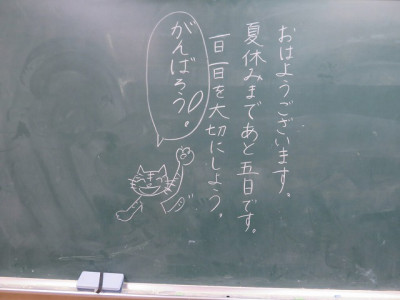 おはようございます。
夏休みまであと五日です。
一日一日を大切にしよう。
がんばろう。